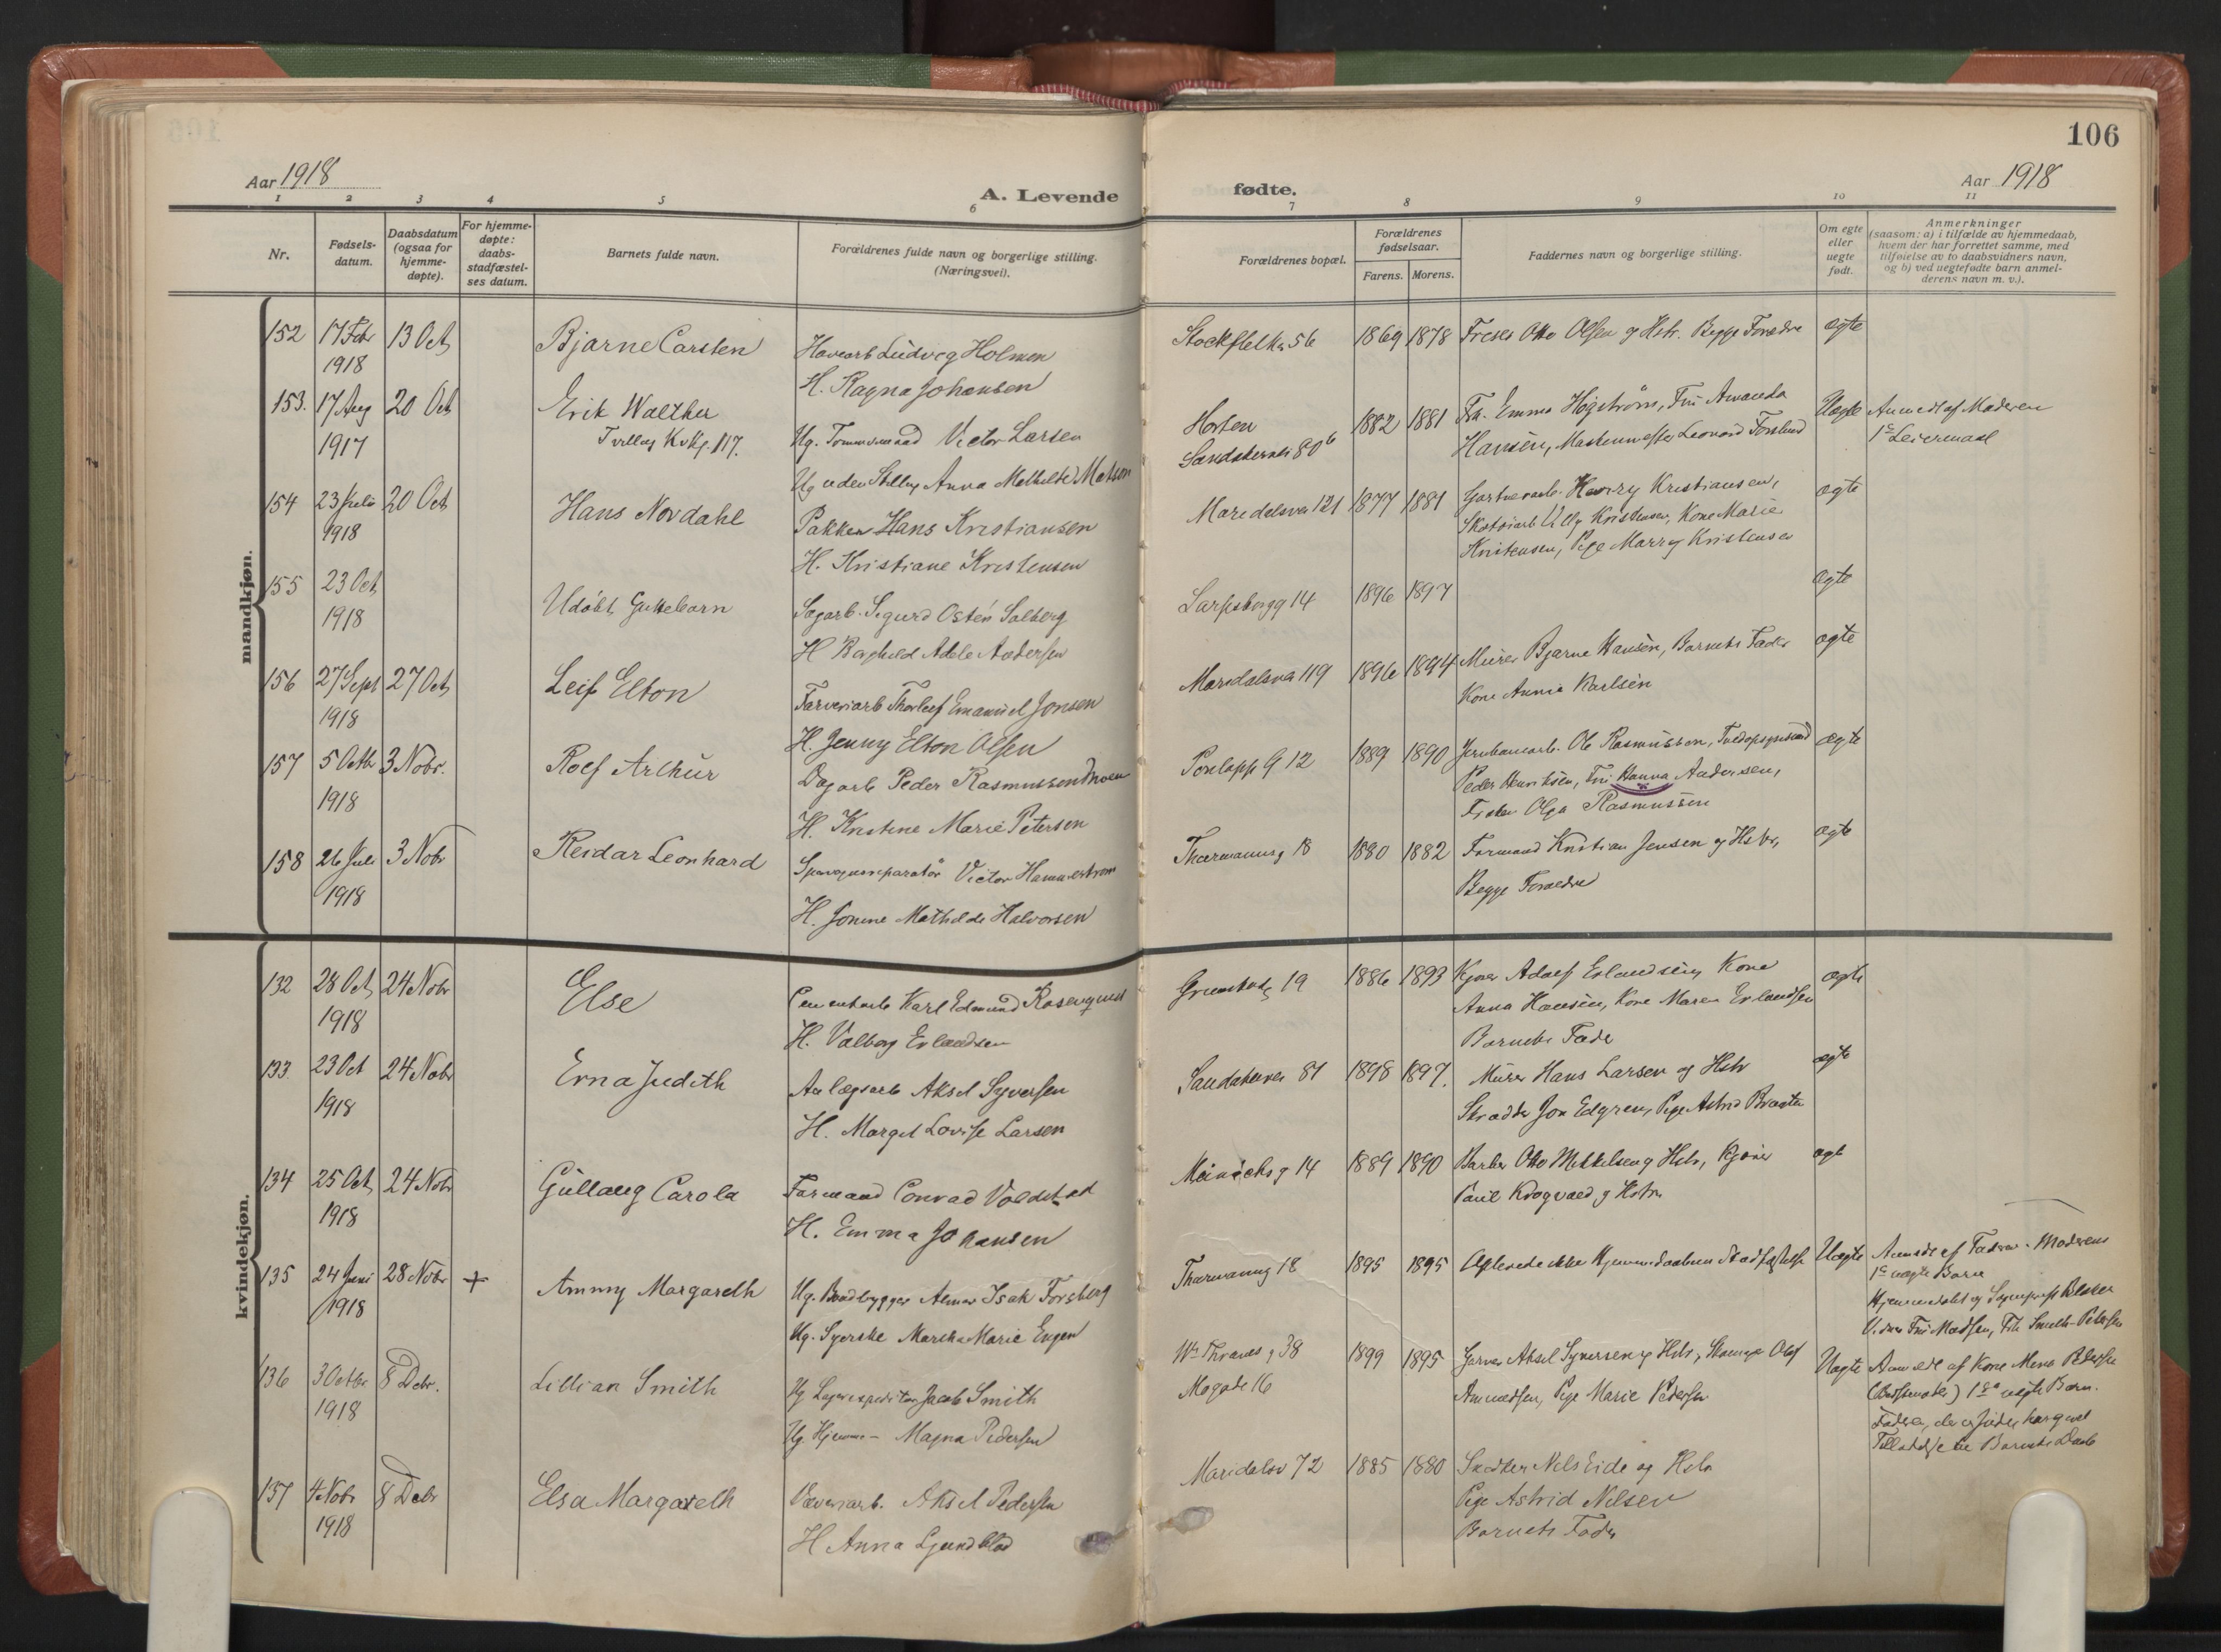 106
Aar 1918
A. Levende fødte.
Aar 1918
1 2 3 4 5 6 7 8 9 10 11
Nr.
Fødsels-
datum.
Daabsdatum
(ogsaa for
hjemme-
døpte).
For hjemme-
døpte:
daabs-
stadfæstel-
ses datum.
Barnets fulde navn.
Forældrenes fulde navn og borgerlige stilling.
(Næringsvei).
Forældrenes bopæl.
Forældrenes
fødselsaar.
Farens. Morens.
Faddernes navn og borgerlige stilling.
Om egte
eller
uegte
født.
Anmerkninger
(saasom: a) i tilfælde av hjemmedaab,
hvem der har forrettet samme, med
tilføielse av to daabsvidners navn,
og b) ved uegtefødte barn anmel-
derens navn m. v.).
mandkjøn.
152 17 Febr 13 Oct Bjarne Carsten Havearb Ludvig Holmen Stockfleths 56 1869 1878 Otto Olsen og Hstr. Begge Forældre ægte
1918 H. Ragna Johansen
153. 17 Aug 20 Oct Erik Walther Ug. Tømmermand Victor Larsen Horten 1882 1881 Frk. Emma Högström, Fru Amanda Uægte Anmeldt af Moderen
1917 Tvilling Kvkj. 117. Ug uden Stilling Anna Mathilde Matson Sandakerven 80 b Hansen, Maskinmester Leonard Forslund 1ste Leiermaal
154 23 Juli 20 Oct Hans Nordahl Pakker Hans Kristiansen Maridalsvei 121 1877 1881 Gartnerarb. Harry Kristiansen, ægte
1918 H. Kristiane Kristensen Skotøiarb Willy Kristensen, Kone Marie
Kristensen, Pige Marry Kristensen
155 23 Oct Udøbt Guttebarn Sagarb. Sigurd Osten Solberg Sarpsborgg 14 1896 1897 ægte
1918 H Borghild Adele Andersen
156 27 Sept 27 Oct Leif Elton Farveriarb Thorleif Emanuel Jonsen Maridalsvei 119 1896 1894 Murer Bjarne Hansen, Barnets Fader ægte
1918 H. Jenny Elton Olsen Kone Annie Karlsen
157 5 Octbr 3 Nobr. Rolf Arthur Dagarb Peder Rasmussen Torslapp G 12 1889 1890 Jernbanearb. Ole Rasmussen, ægte
1918 H. Kristine Marie Petersen Peder Henriksen, Fru Hanna Andersen,
Frøken Olga Rasmussen
158 26 Juli 3 Nobr Reidar Leonhard Victor Hammerstrøm Thormannsg 18 1880 1882 Formand Kristian Jensen og Hstr, ægte
1918 H. Jonine Mathilde Halvorsen Begge Forældre
kvindekjøn.
132 28 Oct 24 Nobr Else Cementarb Karl Edmund Rosenquist Grimstadg 19 1886 1893 Kjører Adolf Erlandsen, Kone ægte
1918 H. Valborg Erlandsen Anna Hansen, Kone Maren Erlandsen
Barnets Fader
133 23 Oct 24 Nobr Erna Judith Anlægsarb Aksel Syversen Sandakerven 81 1898 1897. Murer Hans Larsen og Hstr ægte
1918 H. Margit Lovise Larsen Skrædder Jon Edgren, Pige Astrid Braaten
134 25 Oct 24 Nobr Gullaug Carola Formand Conrad Voldstad Meinichsg 14 1889 1890 Barber Otto Mikkelsen og Hstr, Kjører ægte
1918 H. Emma Johansen Paul Krogvold og Hstr.
135 24 Juni 28 Nobr + Ammy Margareth Ug. Baadbygger Almar Isak Forsberg Thormannsg 18 1895 1895 Oplevede ikke Hjemmedaabens Stadfæstelse Uægte Anmeldt af Faderen. Moderens
1918 Ug. Syerske Martha Marie Engen 1ste uægte Barn
Hjemmedøbt af Sognepræst Blakar
Vidner Fru Madsen, Frk Smith-Petersen
136 3 Octbr 8 Debr. Lillian Smith Ug Lagerexpeditør Jacob Smith Ws Thranes g 38 1899 1895 Garver Aksel Syversen og Hstr, Olaf Uægte Anmeldt af Kone Mina Pedersen
1918 Ug. Hjemme- Magna Pedersen Mogade 16 Amundsen, Pige Marie Pedersen (Bedstemoder) 1ste uægte Barn.
Faderen, der er Jøde, har givet
Tilladelse til Barnets Daab
137 4 Nobr 8 Debr Elsa Margareth Væveriarb. Aksel Pedersen Maridalsv 72 1885 1880 Snedker Nils Eide og Hstr
1918 H Anna Ljundblad Pige Astrid Nilsen
Barnets Fader